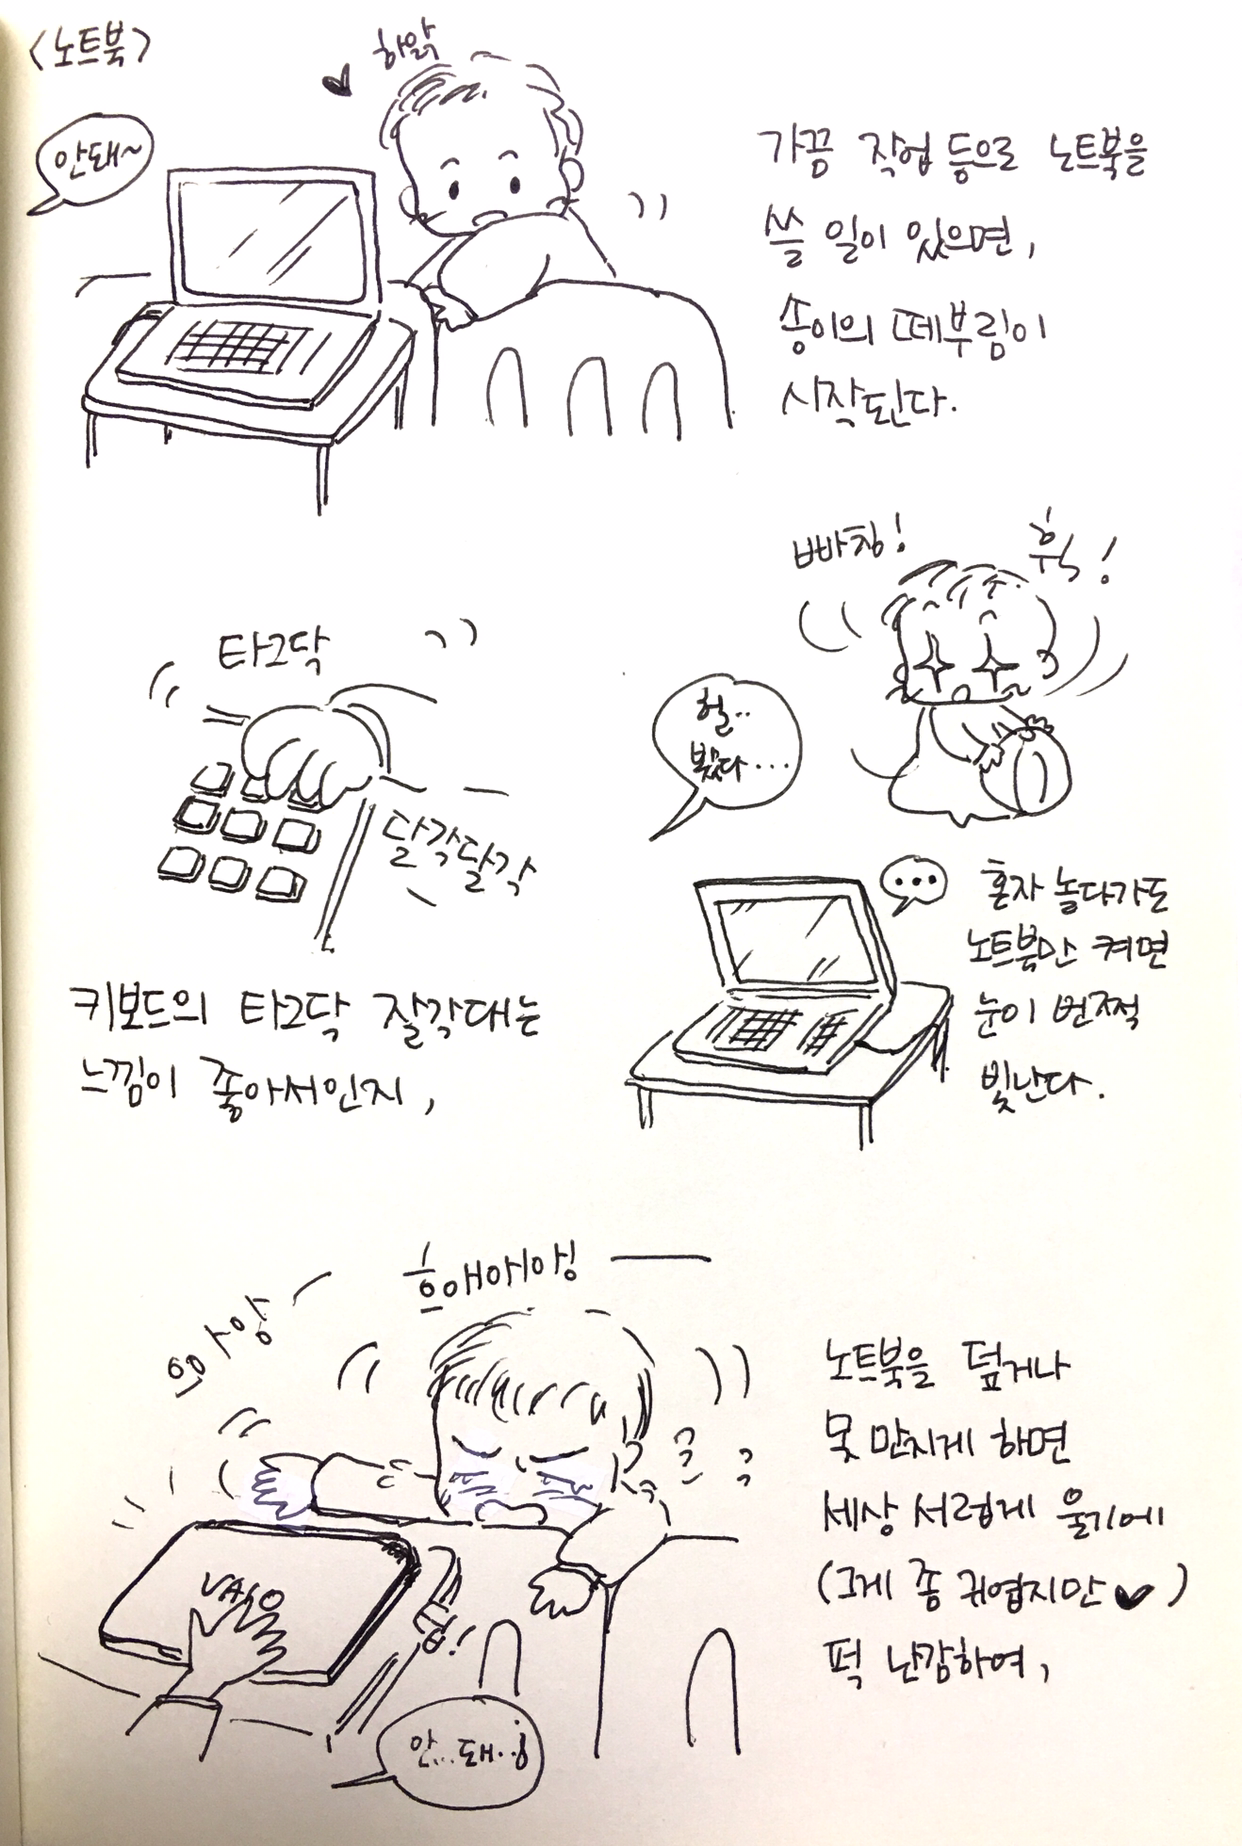 <노트북>
안돼~
하앍
가끔 작업 등으로 노트북을
쓸 일이 있으면,
송이의 떼부림이
시작된다.
타그닥
달각달각
키보드의 타그닥 잘각대는
느낌이 좋아서인지,
빠칭!
휙!
헐..
봤다...
...
혼자 놀다가도
노트북만 켜면
눈이 번쩍
빛난다.
흐애애애앵
으아앙
VAIO
안...돼..!
노트북을 덮거나
못 만지게 하면
세상 서럽게 울기에
(그게 좀 귀엽지만♥)
퍽 난감하여,